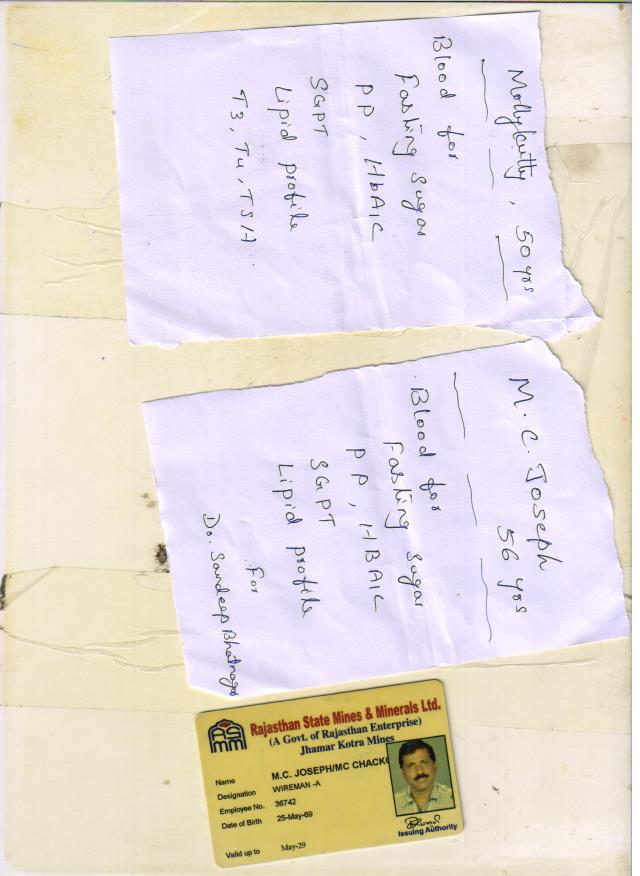 Mollykutty, 50 yrs
Blood for
Fasting Sugar
PP, HbA1C
SGPT
Lipid profile
T3, T4, TSH
M. C. Joseph
56 yrs
Blood for
Fasting Sugar
PP, HBA1C
SGPT
Lipid profile
For
Dr. Sandeep Bhatnagar
Rajasthan State Mines & Minerals Ltd.
(A Govt. of Rajasthan Enterprise)
Jhamar Kotra Mines
Name M.C. JOSEPH/MC CHACKO
Designation WIREMAN -A
Employee No. 36742
Date of Birth 25-May-69
Valid up to May-29
Issuing Authority